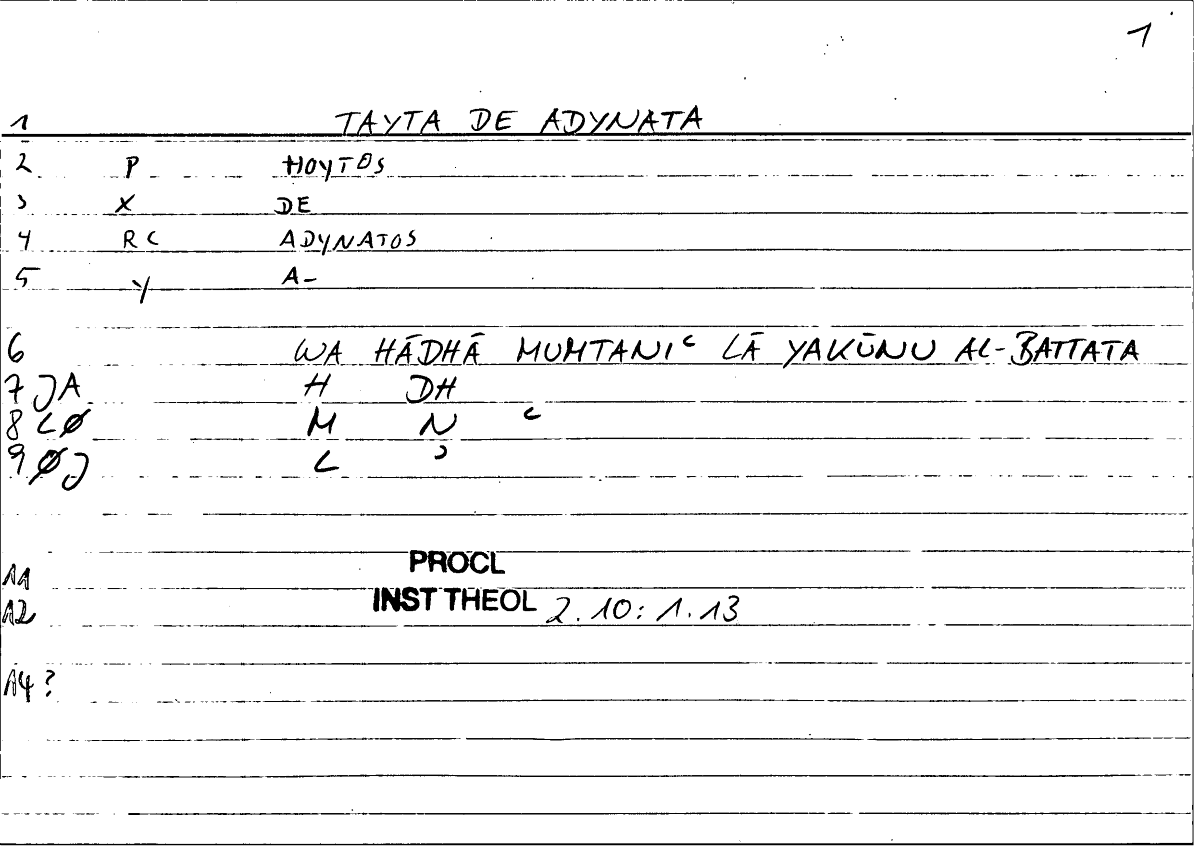 1
1 TAYTA DE ADYNATA
2 P HOYTOS
3 X DE
4 RC ADYNATOS
5 Y A-
6 WA HĀDHĀ MUMTANIᶜ LĀ YAKŪNU AL-BATTATA
7 JA H DH
8 CØ M N ᶜ
9 ØJ L ʾ
11 PROCL
12 INST THEOL 2.10: 1.13
14?